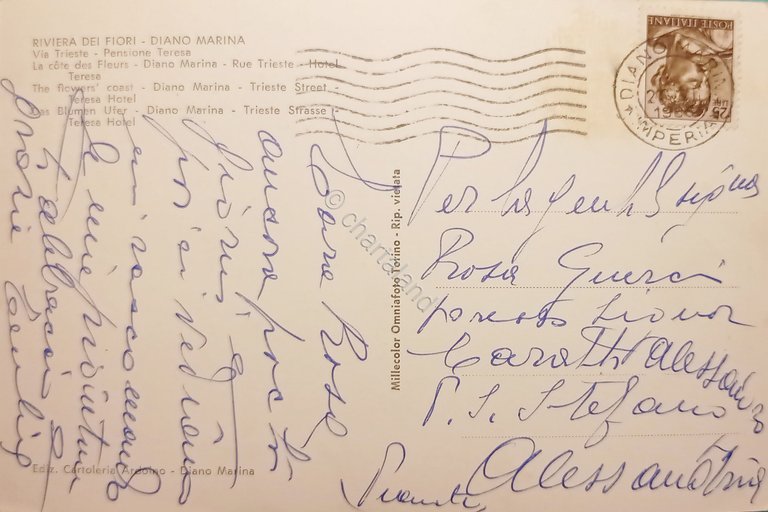 RIVIERA DEI FIORI - DIANO MARINA
Via Trieste - Pensione Teresa
La côte des Fleurs - Diano Marina - Rue Trieste - Hotel
Teresa
The flowers' coast - Diano Marina - Trieste Street -
Teresa Hotel
Das Blumen Ufer - Diano Marina - Trieste Strasse -
Teresa Hotel
POSTE ITALIANE
DIANO MARINA
IMPERIA
Millecolor Omniafoto Torino - Rip. vietata
© chartaland
Per la gent
Rosa Guerci
presso Signor
Caratti Alessandro
P. S. Stefano
Alessandria
Piemonte
Cara Rosa
ancora pochi
giorni e
poi ci vediamo
mi raccomando
le mie
abbracci
Ediz. Cartoleria Ardoino - Diano Marina